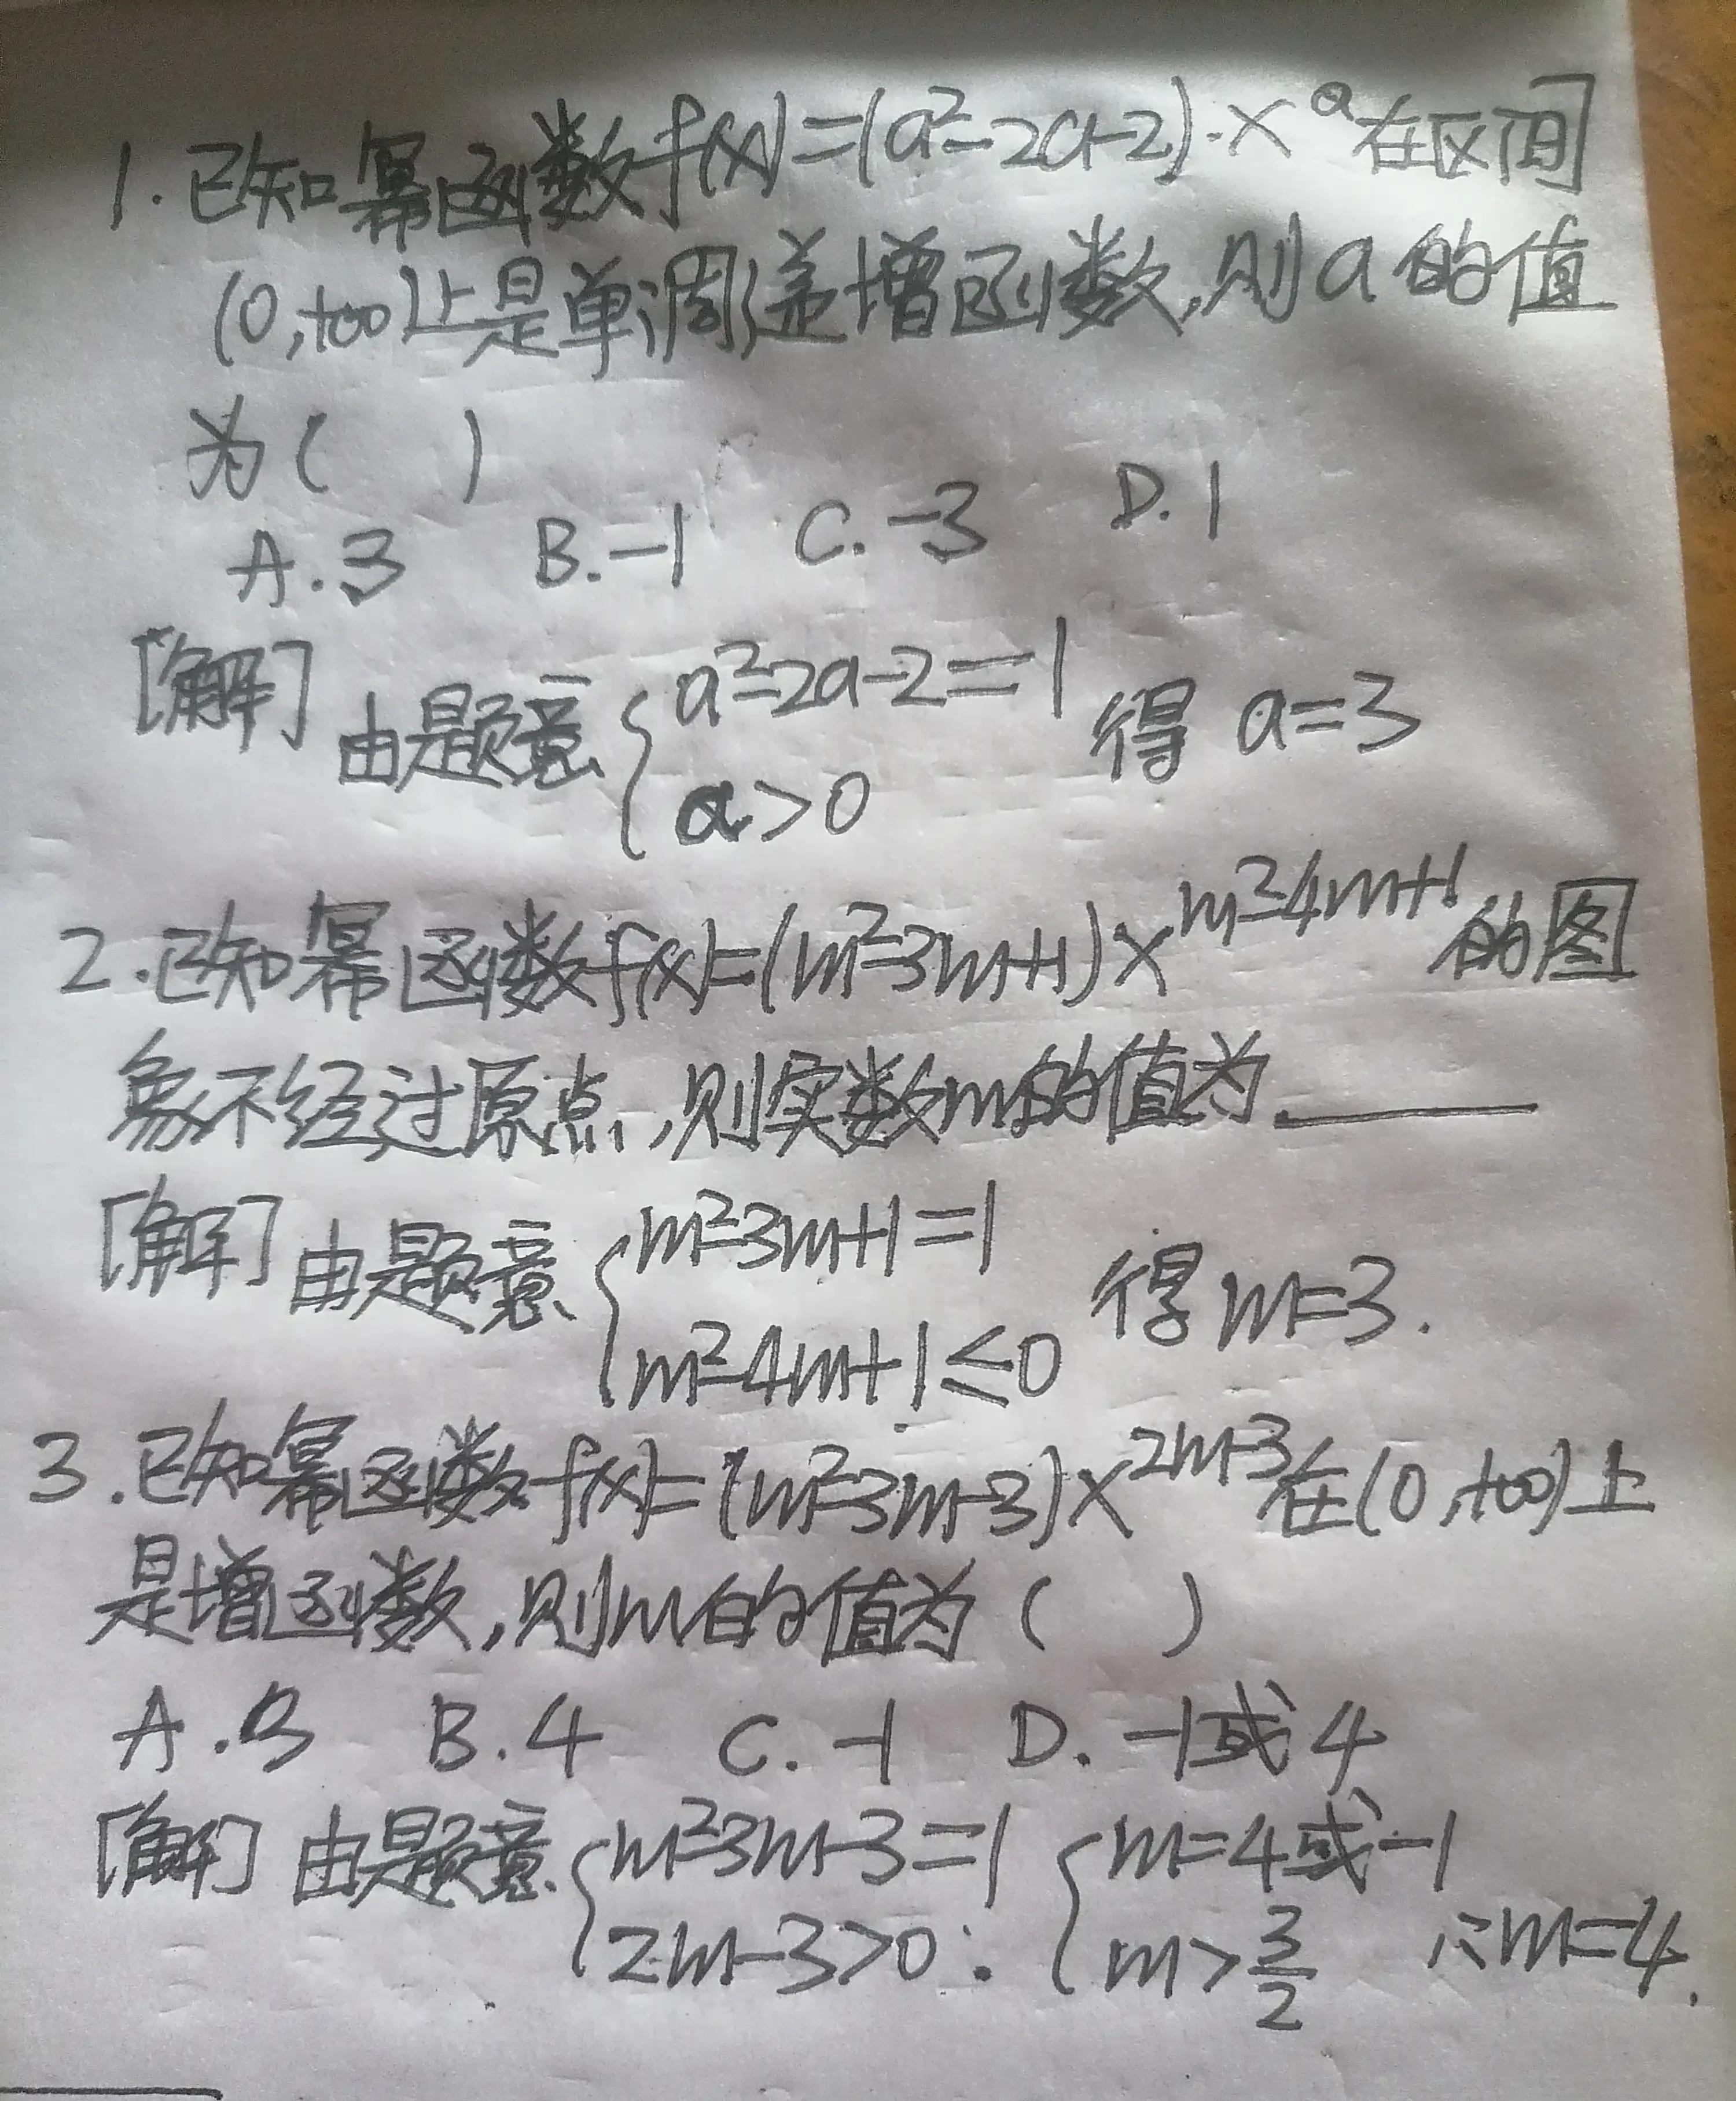 1.已知幂函数f(x)=(a²-2a-2)·x^a在区间
(0,+∞)上是单调递增函数,则a的值
为( )
A.3 B.-1 C.-3 D.1
[解] 由题意{a²-2a-2=1 得 a=3
a>0
2.已知幂函数f(x)=(m²-3m+1)x^(m²-4m+1)的图
象不经过原点,则实数m的值为______
[解]由题意{m²-3m+1=1 得m=3.
m²-4m+1≤0
3.已知幂函数f(x)=(m²-3m-3)x^(2m-3)在(0,+∞)上
是增函数,则m的值为( )
A.3 B.4 C.-1 D.-1或4
[解] 由题意{m²-3m-3=1 {m=4或-1
2m-3>0 ∴ m>3/2 ∴m=4.